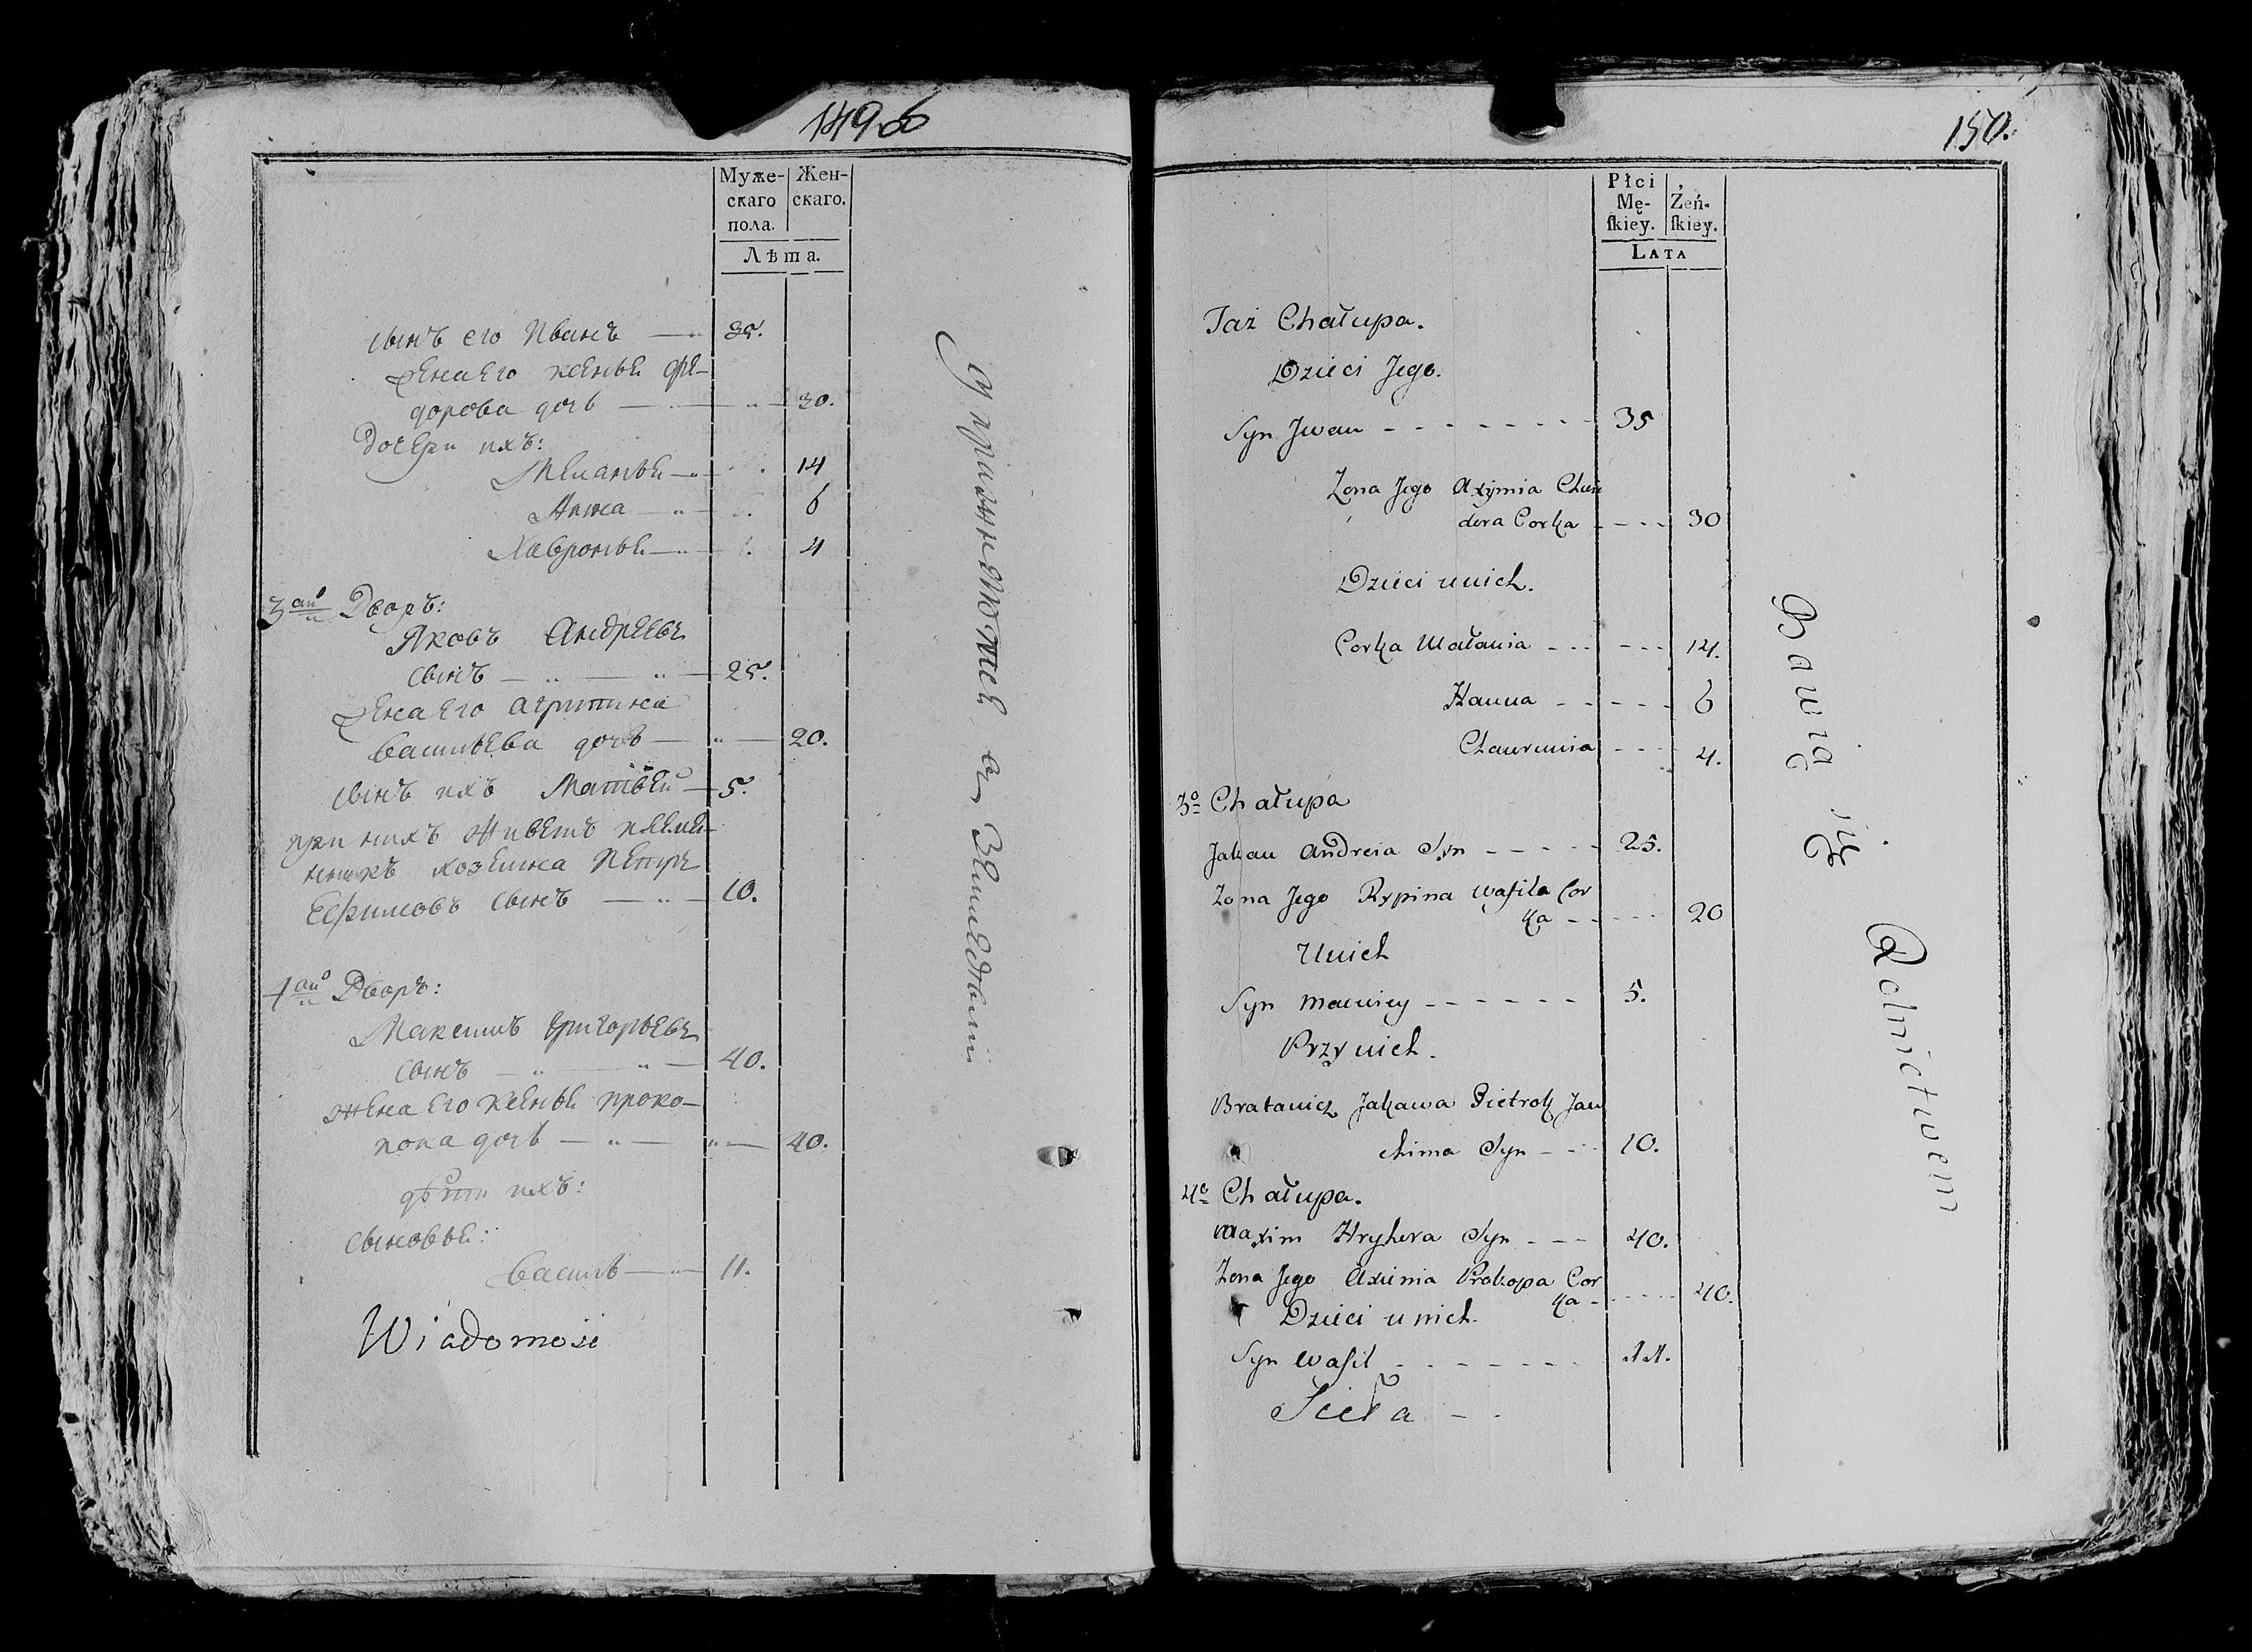 149об
Муже-
скаго
пола.
Жен-
скаго.
Лѣта.
сынъ его Иванъ — 35.
жена его ксенья фе-
дорова дочь — 30.
Дочери ихъ:
Меланья — 14
Анна — 6
Хавронья — 4
3ай Дворъ:
Яковъ Андреевъ
сынъ — 25.
жена его агрипина
васильева дочь — 20.
сынъ ихъ Матвѣй — 5.
при нихъ живетъ племя-
никъ хозяина Петръ
Ефимовъ сынъ — 10.
4ай Дворъ:
Максимъ григорьевъ
сынъ — 40.
жена его ксенья проко-
пова дочь — 40.
дѣти ихъ:
сыновья:
василь — 11.
Wiadomosć
упражняются в Земледѣлии
150.
Płci
Mę-
ſkiey.
Żeń-
ſkiey.
Lata
Taż Chałupa.
Dzieci Jego.
Syn Jwan - - - - - - - - 35
Zona Jego Axymia Chwie
dora Corka - - - - 30
Dzieci unich.
Corka Małania - - - - - - 14.
Hanna - - - - - 6
Chauronia - - - 4.
3o Chałupa
Jakau Andreia Syn - - - - - 25.
Zona Jego Rypina Waſila Cor
ka - - - - - 20
Unich
Syn Mauciey - - - - - - 5.
Przy nich.
Bratanicz Jakawa Pietrok Jau
chima Syn - - - 10.
4o Chałupa.
Maxim Hryhora Syn - - - 40.
Zona Jego Axinia Prokopa Cor
ka - - - - - 40.
Dzieci u nich.
Syn Waſil - - - - - - - 11.
Sieła - -
Bawią się Rolnictwem